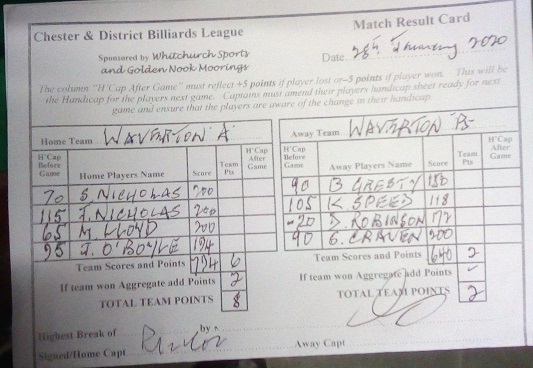 Chester & District Billiards League
Match Result Card
Sponsored by Whitchurch Sports
and Golden Nook Moorings
Date 28th January 2020
The column "H'Cap After Game" must reflect +5 points if player lost or -5 points if player won. This will be
the Handicap for the players next game. Captains must amend their players handicap sheet ready for next
game and ensure that the players are aware of the change in their handicap
Home Team WAVERTON 'A'
H'Cap Before Game Home Players Name Score Team Pts H'Cap After Game
70 S. NICHOLAS 200
115 J. NICHOLAS 200
65 M. LLOYD 200
95 J. O'BOYLE 194
Team Scores and Points 794 6
If team won Aggregate add Points 2
TOTAL TEAM POINTS 8
Away Team WAVERTON 'B'
H'Cap Before Game Away Players Name Score Team Pts H'Cap After Game
90 B GRESTY 150
105 K SPEED 118
-20 D ROBINSON 172
90 G. CRAVEN 200
Team Scores and Points 640 2
If team won Aggregate add Points -
TOTAL TEAM POINTS 2
Highest Break of by
Signed/Home Capt
Away Capt